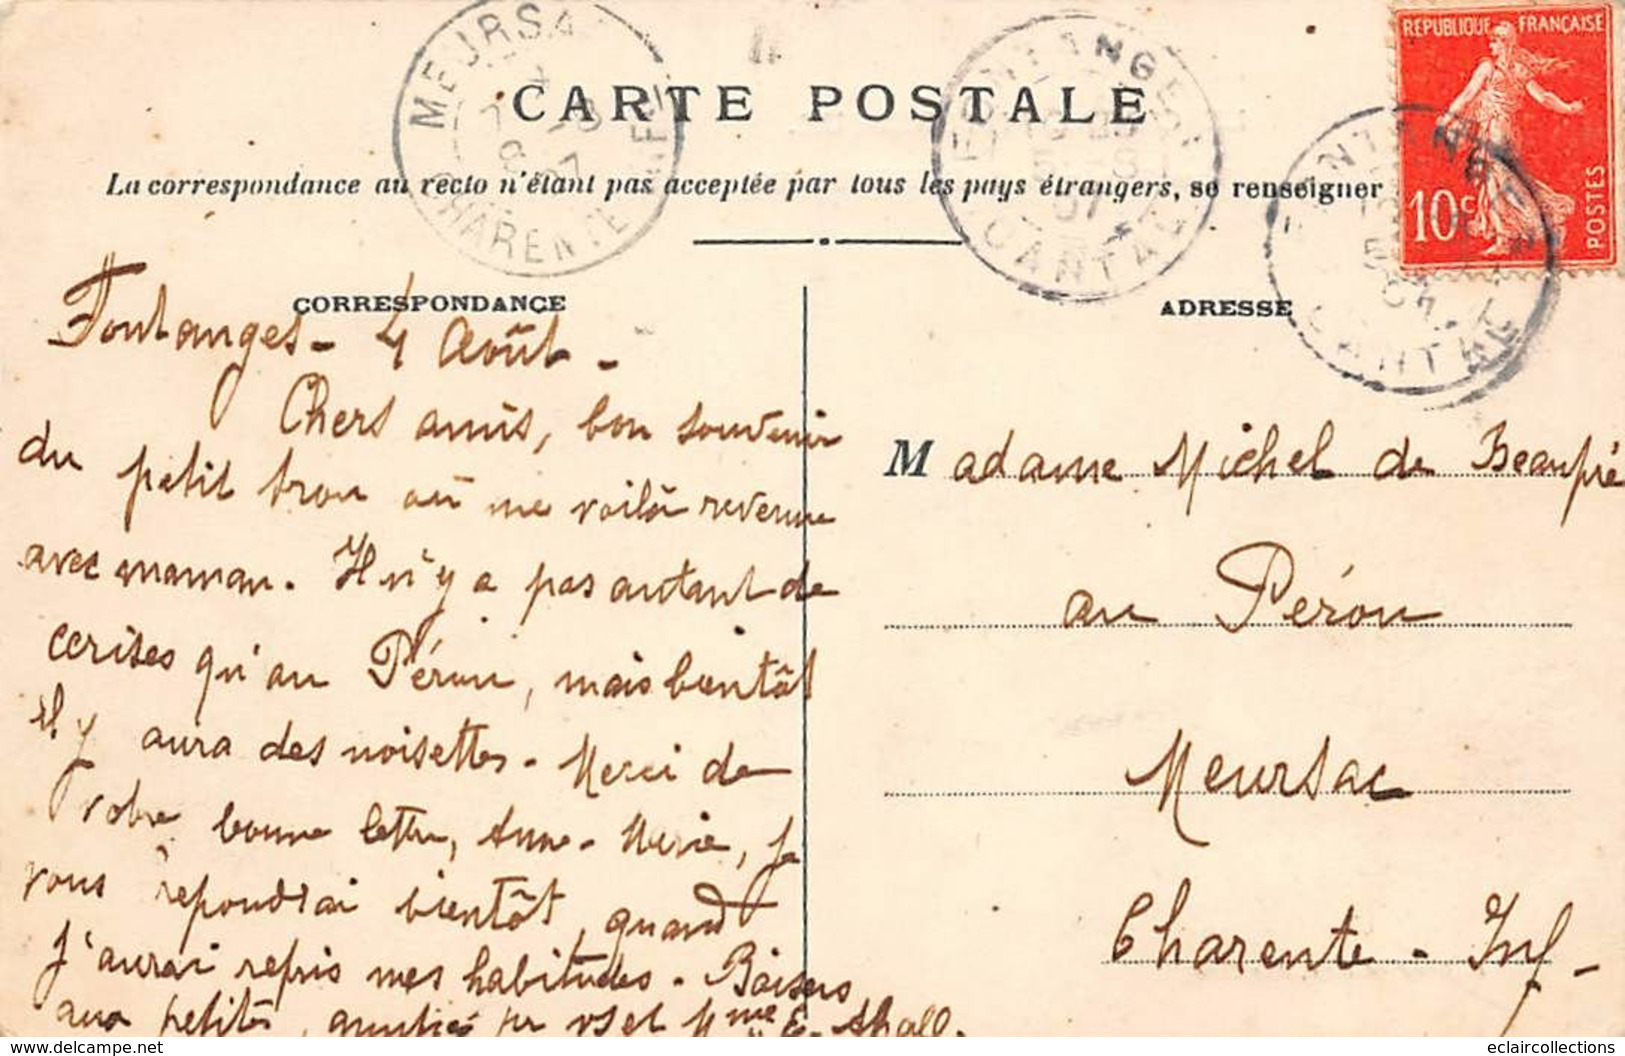 CARTE POSTALE
La correspondance au recto n'étant pas acceptée par tous les pays étrangers, se renseigner
RÉPUBLIQUE FRANÇAISE
10c
POSTES
MEURSAC
CHARENTE INF
FONTANGES
CANTAL
FONTANGES
CANTAL
CORRESPONDANCE
Fontanges - 4 Août -
Chers amis, bon souvenir
du petit trou où me voilà revenue
avec maman. Il n'y a pas autant de
cerises qu'au Pérou, mais bientôt
il y aura des noisettes. Merci de
votre bonne lettre, Anne-Marie, je
vous répondrai bientôt, quand
j'aurai repris mes habitudes. Baisers
aux petites, amitiés pr vs et Mme E.
ADRESSE
Madame Michel de Beaupré
au Pérou
Meursac
Charente-Inf-
eclaircollections
www.delcampe.net